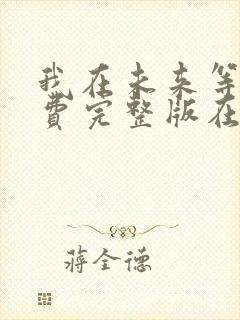 我在未来等
费完整版在
蒋全德